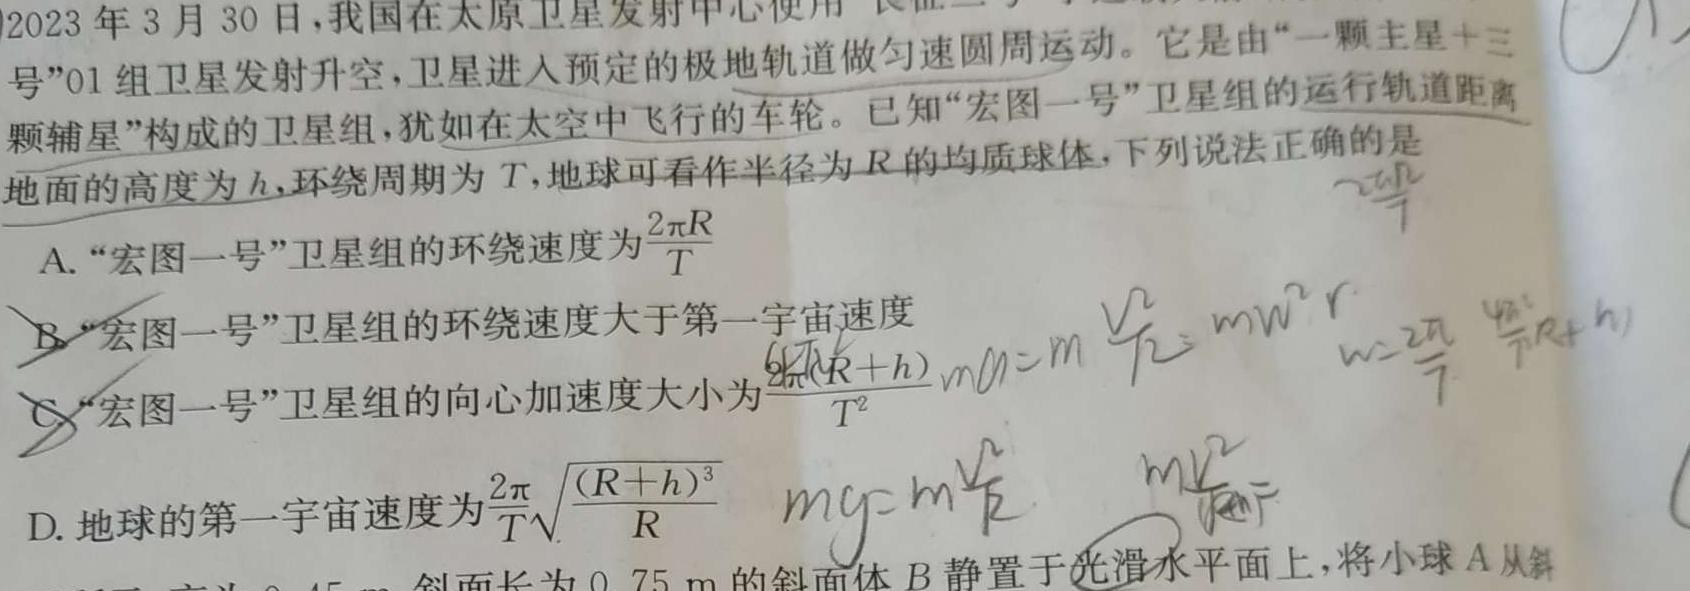 2023年3月30日,我国在太原卫星发射中心使用
号”01组卫星发射升空,卫星进入预定的极地轨道做匀速圆周运动。它是由“一颗主星+三
颗辅星”构成的卫星组,犹如在太空中飞行的车轮。已知“宏图一号”卫星组的运行轨道距离
地面的高度为h,环绕周期为T,地球可看作半径为R的均质球体,下列说法正确的是
A.“宏图一号”卫星组的环绕速度为\frac{2πR}{T}
B.“宏图一号”卫星组的环绕速度大于第一宇宙速度
C.“宏图一号”卫星组的向心加速度大小为\frac{2π(R+h)}{T²} ma=m\frac{V²}{R}=mw²r w=\frac{2π}{T}
D.地球的第一宇宙速度为\frac{2π}{T}\sqrt{\frac{(R+h)³}{R}} mg=m\frac{V²}{R}
斜面长为0.75 m的斜面体B静置于光滑水平面上,将小球A从斜